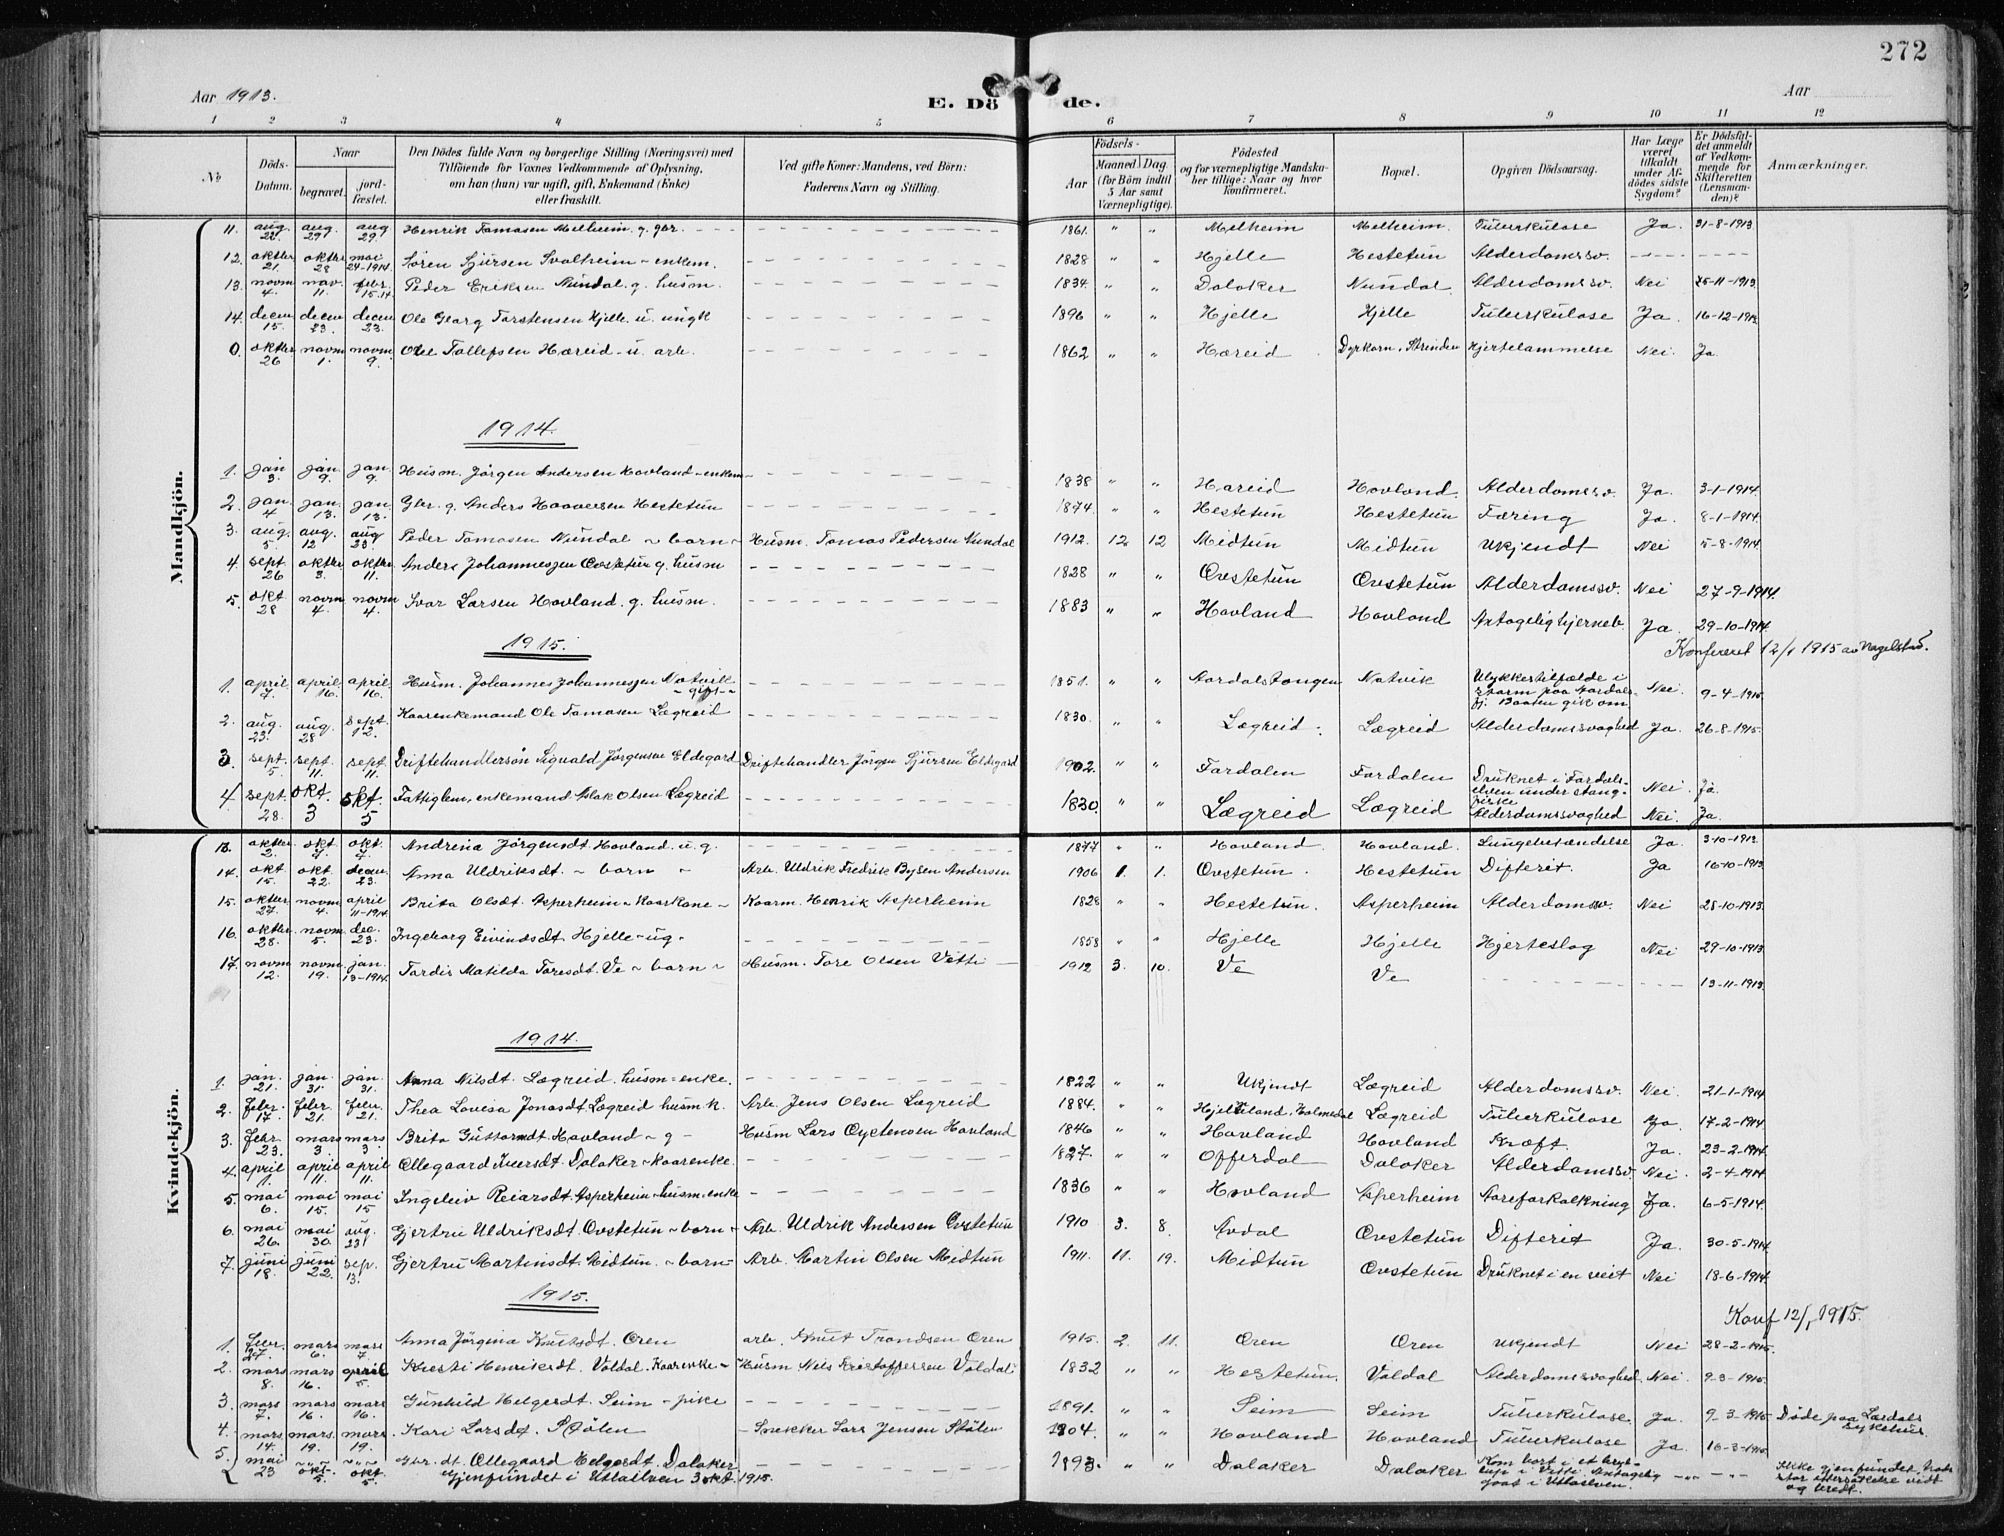 272
Aar 1913.
E. Dö de.
Aar
1 2 3 4 5 6 7 8 9 10 11 12
No
Döds-Datum.
Naar
begravet.
jord-fæstet.
Den Dödes fulde Navn og borgerlige Stilling (Næringsvei) med
Tilföiende for Voxnes Vedkommende af Oplysning,
om han (hun) var ugift, gift, Enkemand (Enke)
eller fraskilt.
Ved gifte Koner: Mandens, ved Börn:
Faderens Navn og Stilling.
Födsels-
Aar
Maaned Dag
(for Börn indtil
5 Aar samt
Værnepligtige).
Födested
og for værnepligtige Mandska-
ber tillige: Naar og hvor
konfirmeret.
Bopæl.
Opgiven Dödsaarsag.
Har Læge
været
tilkaldt
under Af-
dödes sidste
Sygdom?
Er Dödsfal-
det anmeldt
af Vedkom-
mende for
Skifteretten
(Lensman-
den)?
Anmærkninger.
Mandkjön.
11. aug. 22. aug. 29. aug. 29. Henrik Tomasen Melheim. g. gbr. 1861. " " Melheim Melheim. Tuberkulose Ja. 31-8-1913
12. oktbr 21. oktbr 28 mai 24-1914. Sören Sjursen Svalheim - enkem. 1828 " " Hjelle Hestetun Alderdomssv.
13. novm 4. nov. 11. febr. 15.14. Peder Eriksen Nundal. g. husm. 1834. " " Dalaker Nundal. Alderdomssv. Nei 15-11-1913.
14. decem 15. decem 23. decem 23. Ole Georg Torstensen Hjelle. u. ungk 1896 " " Hjelle Hjelle Tuberkulose Ja. 16-12-1913.
0. oktbr 26 novm 1. novm 9. Ole Tollefsen Hæreid - u. arb. 1862 " " Hæreid Dyrkorn, Strinden Hjertelammelse Nei. Ja.
1914.
1. jan 3. jan. 9. jan. 9. Husm. Jörgen Andersen Hovland - enkem - 1838 " " Hareid Hovland. Alderdomssv. Ja. 3-1-1914.
2. jan. 4 jan. 13. jan. 13. Gbr. g. Anders Hestetun 1874. " " Hestetun Hestetun Tæring Ja. 8-1-1914.
3. aug. 5. aug. 12 aug 23. Peder Tomasen Nundal - barn - Husm. Tomas Pedersen Nundal 1912. 12 12 Midtun Midtun Ukjendt Nei 5-8-1914.
4. sept. 26 oktbr 3. oktbr 11. Anders Johannessen Ovstetun g. husm 1828 " " Ovstetun Ovstetun Alderdomssv. Nei 27-9-1914.
5. okt. 28 novm 4. novm 4. Ivar Larsen Hovland. g. husm. 1883 " " Hovland Hovland Antagelig hjerneb. Ja. 29-10-1914.
1915.
Konfereret 12/1 1915 av Nagelstad.
1. april 7. april. 16. april. 16. Husm. Johannes Johannessen Natvik - gift - 1851. " " Aardalstangen Natvik Ulykkestilfælde i storm paa Aardals-fj. Baaten gik om Nei. 9-4-1915.
2. aug. 23. aug. 28 sept. 12. Kaarenkemand Ole Tomasen Lægreid 1830. " " Lægreid. Lægreid Alderdomssvaghed Ja. 26-8-1915.
3. sept. 5. sept. 11. sept. 11. Driftehandlersön Sigvald Jörgensen Eldegard Driftehandler Jörgen Sjursen Eldegard 1902. " " Fardalen Fardalen Druknet i Fardals-elven under stang-fiske Nei. Ja.
4. sept. 28. okt. 3 okt. 5 Fattiglem, enkemand Aslak Olsen Lægreid 1830. " " Lægreid Lægreid Alderdomssvaghed Nei. Ja.
Kvindekjön.
13. oktbr 2. okt 7. okt. 7. Andrena Jörgensdt. Hovland. u. g. 1877 " " Hovland. Hovland. Lungebetændelse Ja. 3-10-1913.
14. okt 15. okt. 22. decem. 23. Anna Uldriksdt. - barn - Arb. Uldrik Fredrik Bysen Andersen 1906 1. 1. Ovstetun. Hestetun Difterit. Ja 16-10-1913
15. oktbr 27. novm 4. april 11-1914. Brita Olsdt. Asperheim - Kaarkone - Kaarm. Henrik Asperheim 1828 " " Hestetun. Asperheim Alderdomssv. Nei 28-10-1913.
16. oktbr 28. novm. 5. dec. 23. Ingeborg Eivindsdt. Hjelle - ug - 1858 " " Hjelle Hjelle Hjerteslag Nei 29-10-1913.
17. novm 12. novm 19. jan. 13-1914. Tordis Matilda Toresdt. Ve - barn - Husm. Tore Olsen Vetti 1912 3. 10. Ve Ve 13-11-1913.
1914.
1. jan. 21. jan. 31. jan. 31. Anna Nilsdt. Lægreid. husm - enke. 1822 " " Ukjendt Lægreid Alderdomssv. Nei. 21-1-1914.
2. febr. 17. febr. 21. febr. 21. Thea Lovisa Jonasdt. Lægreid husm. k. Arb. Jens Olsen Lægreid 1884. " " Hjelleland, Holmedal Lægreid Tuberkulose Ja. 17-2-1914.
3. febr. 23. mars 3. mars 3 Brita Guttormdt. Hovland - g - Husm Lars Øystensen Hovland 1846 " " Hovland Hovland Kræft. Ja. 23-2-1914.
4. april 1. april 11. april 11. Ollegaard Iversdt. Dalaker - kaarenke. 1827. " " Offerdal Dalaker Alderdomssv. Nei. 2-4-1914.
5. mai 6. mai 15. mai 15 Ingeleiv Reiarsdt. Asperheim - husm. enke 1836 " " Hovland Asperheim Aareforkalkning Ja. 6-5-1914.
6. mai 26. mai 30. aug. 23. Gjertru Uldriksdt. Ovstetun - barn - Arb. Uldrik Andersen Ovstetun 1910 3. 8. Avdal Ovstetun Difterit Ja. 30-5-1914
7. juni 18. juni 22. sep. 13. Gjertru Martinsdt. Midtun. - barn - Arb. Martin Olsen Midtun 1911. 11. 19. Midtun Ovstetun Druknet i en veit Nei 18-6-1914.
1915.
Konf 12/1 1915.
1. febr. 27. mars 6. mars 7 Anna Jörgina Knutsdt. Øren arb. Knut Trondsen Øren 1915. 2. 11. Øren Øren ukjendt Nei 28-2-1915.
2. mars 8. mars 16. april 5. Kristi Henriksdt. Voldal. Kaarenke - Husm Nils Kristoffersen Voldal 1832 " " Hestetun. Voldal Alderdomssvaghed. Nei. 9-3-1915
3. mars 7. mars 16. mars 16. Gunhild Helgesdt. Seim - pike 1891. " " Seim Seim Tuberkulose. Ja. 9-3-1915 Döde paa Lærdals sykehus.
4. mars 14. mars 19. mars 19. Kari Larsdt. Stölen - Snekker Lars Jensen Stölen 1904. " " Hovland Hovland Tuberkulose Ja. 16-3-1915.
5. mai 23 okt. 5. okt. 5. Gbr. dt. Ollegaard Helgesdt. Dalaker 1893. " " Dalaker Dalaker Kom bort i et bryl-lup i Vetti. Antagelig gaat i Utlaelven. Ikke gjenfundet, trods stor eftersökelse vidt og bredt.
Gjenfundet i Utlaelven 3 okt. 1915.